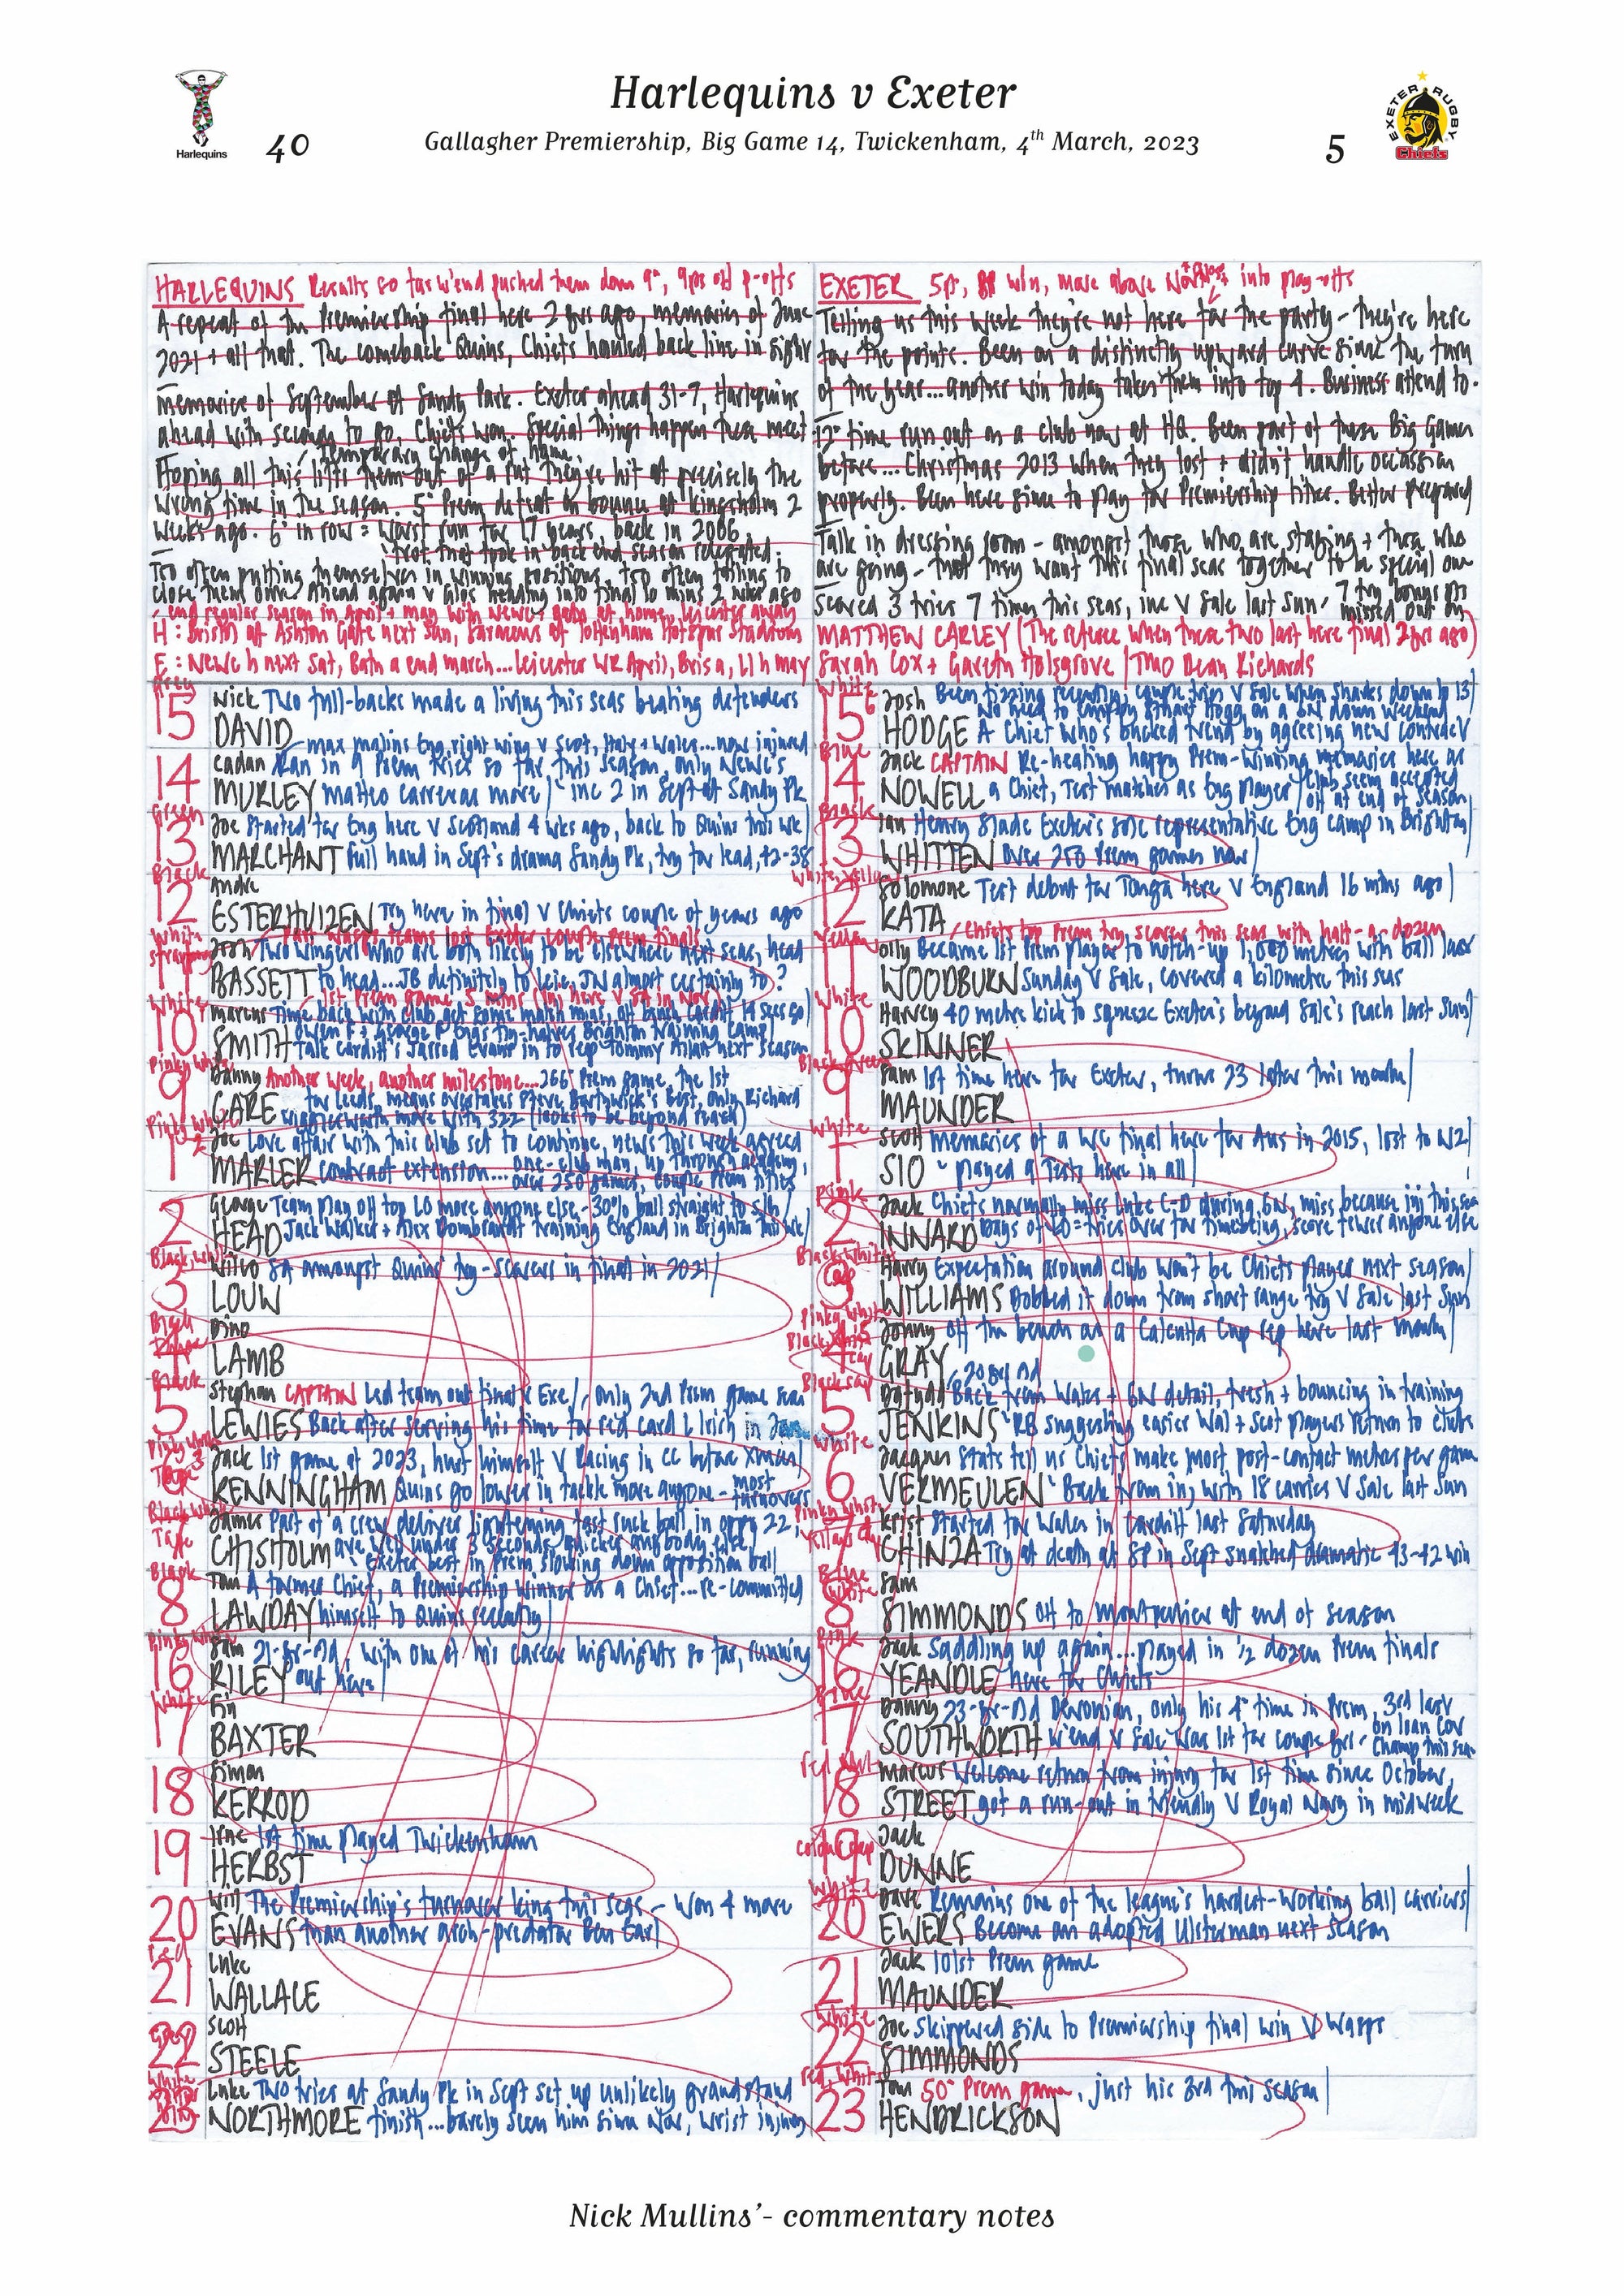 Harlequins v Exeter
Gallagher Premiership, Big Game 14, Twickenham, 4th March, 2023
Harlequins
40
5
EXETER RUGBY
Chiefs
HARLEQUINS Results so far w'end pushed them down 9°, 9pts off p-offs
A repeat of the Premiership final here 2 yrs ago, memories of June
2021 + all that. The comeback Quins, Chiefs hauled back line in sight
Memories of September at Sandy Park. Exeter ahead 31-7, Harlequins
ahead with seconds to go, Chiefs won. Special things happen these meet
Temporary change of home,
Hoping all this lifts them out of a rut they've hit at precisely the
wrong time in the season. 5° Prem defeat on bounce at Kingsholm 2
weeks ago. 6° in row = worst run for 17 years, back in 2006
that they took in back end season relegated.
Too often putting themselves in winning positions, too often failing to
close them out. Ahead again v Glos heading into final 10 mins 2 wks ago
end regular season in April + May with Newc + Bath at home, Leicester away
H: Bristol at Ashton Gate next Sun, Saracens at Tottenham Hotspur Stadium
E: Newc h next Sat, Bath a end march... Leicester WR April, Bris a, LI h may
EXETER 5pt, BP win, move above into play-offs
Telling us this week they're not here for the party - they're here
for the points. Been on a distinctly upward curve since the turn
of the year... another win today takes them into top 4. Business attend to.
2° time run out as a club now at HQ. Been part of these Big Games
before... Christmas 2013 when they lost + didn't handle occassion
properly. Been here since to play for Premiership titles. Better prepared
Talk in dressing room - amongst those who are staying + those who
are going - that they want this final seas together to be special one
Scored 3 tries 7 times this seas, inc v Sale last Sun / 7 try bonus pts
missed out on
MATTHEW CARLEY (The referee when these two last here final 2yrs ago)
Sarah Cox + Gareth Holsgrove / TMO Dean Richards
Grey
15 Nick DAVID Two full-backs made a living this seas beating defenders
Max Malins Eng right wing v Scot, Italy + Wales... now injured
14 Cadan MURLEY Ran in 9 Prem tries so far this season, only Newc's
Matteo Carreras more / inc 2 in Sept at Sandy Pk
Green
13 Joe MARCHANT Started for Eng here v Scotland 4 wks ago, back to Quins this wk
Full hand in Sept's drama Sandy Pk, try for lead, 42-38
Black
12 Andre ESTERHUIZEN Try here in final v Chiefs couple of years ago
White strapping
Part Wasps teams lost Exeter couple Prem finals
11 Josh BASSETT Two wingers who are both likely to be elsewhere next seas, head
to head... JB definitely to Leic, JN almost certainly to ?
White
1st Prem game 5 mths (Inj here v SA in Nov)
10 Marcus SMITH Time back with club get some match mins, off bench Cardiff 14 secs go
Owen F + George F Eng's fly-halves Brighton training camp
Talk Cardiff's Jarrod Evans in to rep Tommy Allan next season
Pinky White
9 Danny CARE Another week, another milestone... 266° Prem game, the 1st
for Leeds, means overtakes Steve Borthwick's best, only Richard
Wigglesworth more with 322 (looks to be beyond reach)
Pinky White
1 Joe MARLER Love affair with this club set to continue, news this week agreed
contract extension... one-club man, up through academy,
over 250 games, couple Prem titles
2 George HEAD Team play off top LO more anyone else - 30% ball straight to s/h
Jack Walker + Alex Dombrandt training England in Brighton this wk
Black, White
3 Wilco LOUW SA amongst Quins' try-scorers in final in 2021
Black Tape
4 Dino LAMB
Black
5 Stephan LEWIES CAPTAIN Led team out final v Exe / only 2nd Prem game seas
Back after serving his time for red card L Irish in Jan
Pinky White Tape
6 Jack KENNINGHAM 1st game of 2023, hurt himself v Racing in CC before Xmas
Quins go lower in tackle more anyone - most turnovers
Black White Tape
7 James CHISHOLM Part of a crew deliver lightening fast ruck ball in oppo 22,
ave well under 3 seconds, quicker anybody else
Exeter best in Prem slowing down opposition ball
Black
8 Tom LAWDAY A former Chief, a Premiership winner as a Chief... re-committed
himself to Quins recently
Pinky White
16 Sam RILEY 21-yr-old, with one of his career highlights so far, running
out here
White
17 Fin BAXTER
18 Simon KERROD
19 Irne HERBST 1st time played Twickenham
20 Will EVANS The Premiership's turnover king this seas - Won 4 more
than another arch-predator Ben Earl
Red
21 Luke WALLACE
Grey
22 Scott STEELE
White
23 Luke NORTHMORE Two tries at Sandy Pk in Sept set up unlikely grandstand
finish... barely seen him since Nov, wrist injury
White
15 Josh HODGE Been fizzing recently, couple tries v Sale when Sharks down to 13
No need to employ Stuart Hogg on a 6N down weekend
A Chief who's bucked trend by agreeing new contract
Blue
14 Jack NOWELL CAPTAIN Re-heating happy Prem-winning memories here as
a Chief, Test matches as Eng player / Club seem accepted
off at end of season
Black
13 Ian WHITTEN Henry Slade Exeter's sole representative Eng camp in Brighton
Over 250 Prem games now
White, Yellow
12 Solomone KATA Test debut for Tonga here v England 16 mths ago
Chiefs top Prem try scorer this seas with half-a-dozen
Yellow
11 Olly WOODBURN Became 1st Prem player to notch-up 1,000 metres with ball last
Sunday v Sale, covered a kilometre this seas
White
10 Harvey SKINNER 40 metre kick to squeeze Exeter's beyond Sale's reach last Sun
Black Green
9 Sam MAUNDER 1st time here for Exeter, turns 23 later this month
White
1 Scott SIO Memories of a WC final here for Aus in 2015, lost to NZ
Played 9 Tests here in all
Pink
2 Jack INNARD Chiefs normally miss Luke C-D during 6N, miss because inj this seas
Days of LO = tries over for timebeing, score fewer anyone else
Black White Cap
3 Harry WILLIAMS Expectation around club won't be Chiefs player next season
Dobbed it down from short range try v Sale last Sun
Pinky White
4 Jonny GRAY Off the bench as a Calcutta Cup rep here last month
20 yr old
5 Dafydd JENKINS Back from Wales + 6N detail, fresh + bouncing in training
RB suggesting easier Wal + Scot players return to clubs
White
6 Jacques VERMEULEN Stats tell us Chiefs make most post-contact metres per game
Back from inj with 18 carries v Sale last Sun
Pinky White
7 Christ TSHIUNZA Started for Wales in Cardiff last Saturday
Try at death at SP in Sept snatched dramatic 43-42 win
Blue White
8 Sam SIMMONDS Off to Montpellier at end of season
Pink
16 Jack YEANDLE Saddling up again... played in ½ dozen Prem finals
here for Chiefs
Blue
17 Danny SOUTHWORTH 23-yr-old Devonian, only his 4° time in Prem, 3rd last
w'end v Sale was 1st for couple yrs / on loan Cov
Champ this seas
18 Marcus STREET Welcome return from injury for 1st time since October,
got a run-out in friendly v Royal Navy in midweek
19 Jack DUNNE
White
20 Dave EWERS Remains one of the league's hardest-working ball carriers
Become an adopted Ulsterman next season
21 Jack MAUNDER 101st Prem game
White
22 Joe SIMMONDS Skippered side to Premiership final win v Wasps
Red, White
23 Tom HENDRICKSON 50° Prem game, just his 3rd this season
Nick Mullins'- commentary notes